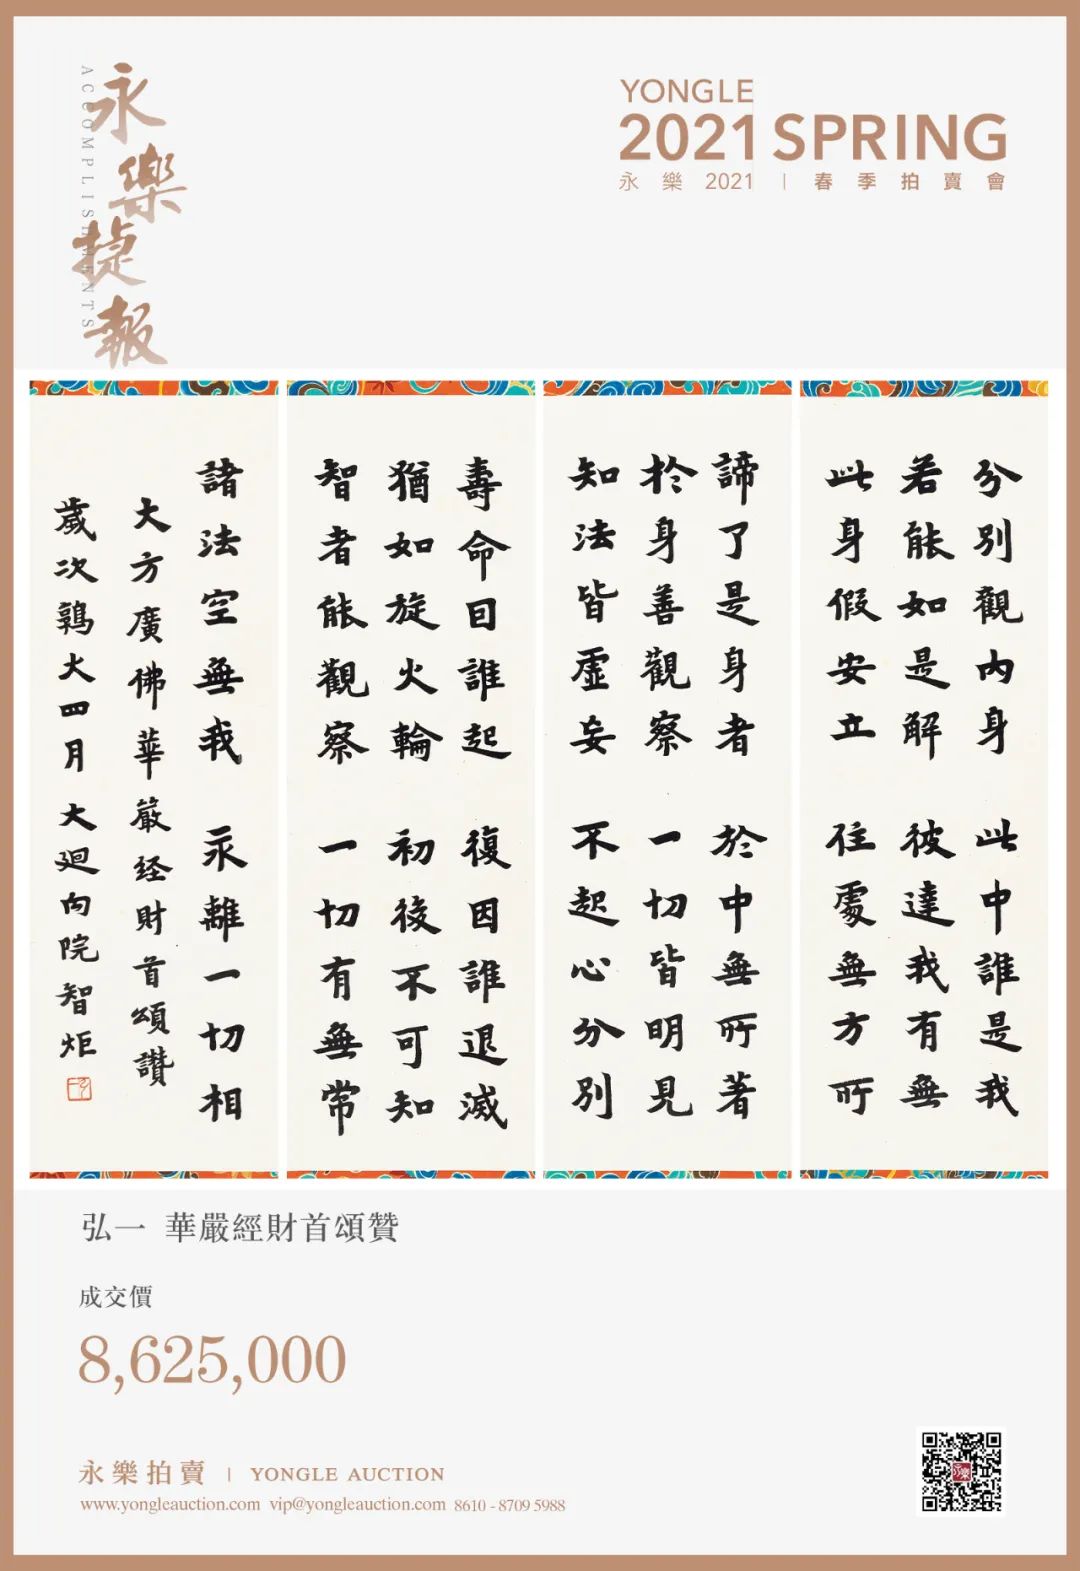 永樂捷報
ACCOMPLISHMENTS
YONGLE
2021 SPRING
永樂 2021 | 春季拍賣會
分別觀內身 此中誰是我
若能如是解 彼達我有無
此身假安立 住處無方所
諦了是身者 於中無所著
於身善觀察 一切皆明見
知法皆虛妄 不起心分別
壽命因誰起 復因誰退滅
猶如旋火輪 初後不可知
智者能觀察 一切有無常
諸法空無我 永離一切相
大方廣佛華嚴经財首頌讚
歲次鶉火四月大迴向院智炬
弘一 華嚴經財首頌贊
成交價
8,625,000
永樂拍賣 | YONGLE AUCTION
www.yongleauction.com vip@yongleauction.com 8610 - 8709 5988